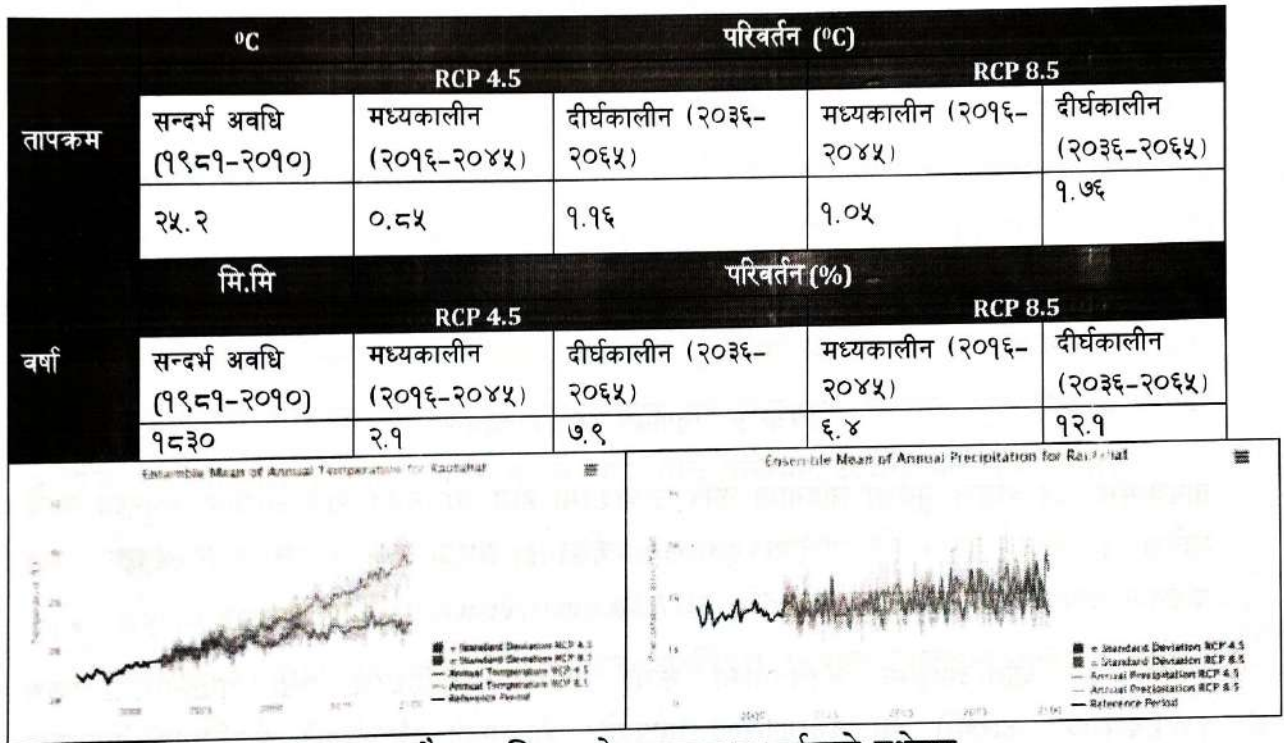 ⁰C परिवर्तन (⁰C)
RCP 4.5 RCP 8.5
तापक्रम सन्दर्भ अवधि (१९८१-२०१०) मध्यकालीन (२०१६-२०४५) दीर्घकालीन (२०३६-२०६५) मध्यकालीन (२०१६-२०४५) दीर्घकालीन (२०३६-२०६५)
२५.२ ०.८५ १.१६ १.०५ १.७६
मि.मि परिवर्तन (%)
RCP 4.5 RCP 8.5
वर्षा सन्दर्भ अवधि (१९८१-२०१०) मध्यकालीन (२०१६-२०४५) दीर्घकालीन (२०३६-२०६५) मध्यकालीन (२०१६-२०४५) दीर्घकालीन (२०३६-२०६५)
१८३० २.१ ७.९ ६.४ १२.१
Ensemble Mean of Annual Temperature for Rautahat
Standard Deviation RCP 4.5
Standard Deviation RCP 8.5
Annual Temperature RCP 4.5
Annual Temperature RCP 8.5
Reference Period
Ensemble Mean of Annual Precipitation for Rautahat
Standard Deviation RCP 4.5
Standard Deviation RCP 8.5
Annual Precipitation RCP 4.5
Annual Precipitation RCP 8.5
Reference Period